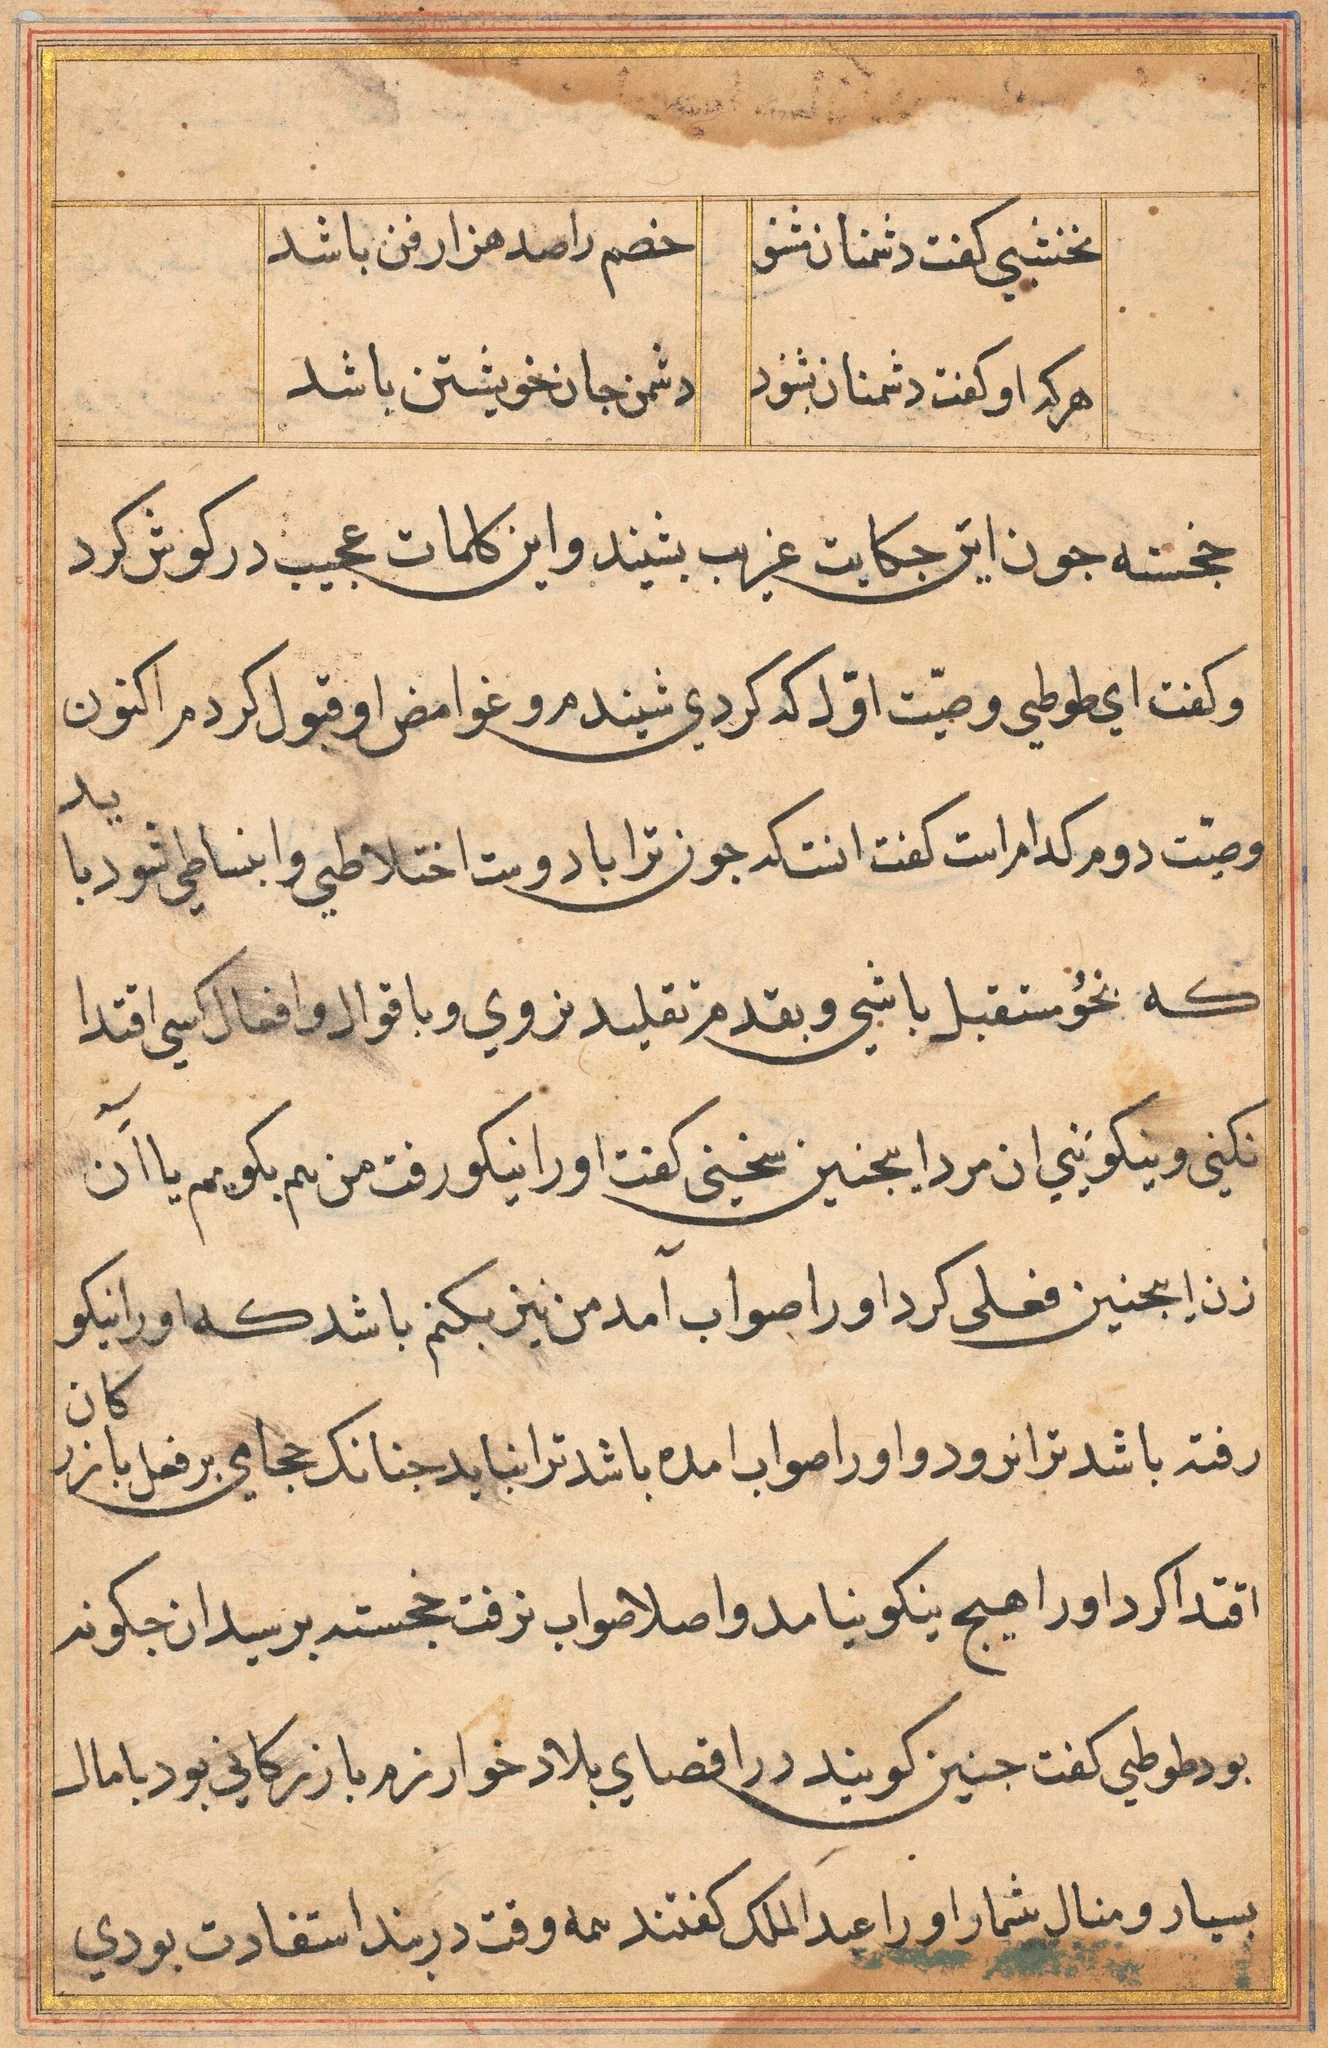 نخشبی کفت دشمنان مشنو خصم را صد هزار فن باشد
هرکه او کفت دشمنان بشنود دشمن جان خویشتن باشد
خجسته جون این حکایت غریب بشیند و این کلمات عجیب در کوش کرد
و کفت ای طوطی وصیّت اوّل که کردی شیندم و غوامض او قبول کردم اکنون
وصیّت دوم کدام است کفت انست که جون ترا با دوست اختلاطی و انبساطی شود باید
که بخود مستقبل باشی و بقدم تقلید نروی و باقوال و افعال کسی اقتدا
نکنی و نیکو بینی ان مرد ایبجنین سخنی کفت او را نیکو رفت من هم بکویم یا آن
زن ایبجنین فعلی کرد او را صواب آمد من نیز بکنم باشد که او را نیکو
رفته باشد ترا نرود و او را صواب امده باشد ترا نباید جنانک حجامی بر فعل بازرکان
اقتدا کرد او را هیج نیکو نیامد و اصلا صواب نرفت خجسته برسید ان جکونه
بود طوطی کفت جنین کویند در اقصای بلاد خوارزم بازرکانی بود با مال
بسیار و منال شمار او را عبدالملک کفتند همه وقت در بند استفادت بودی